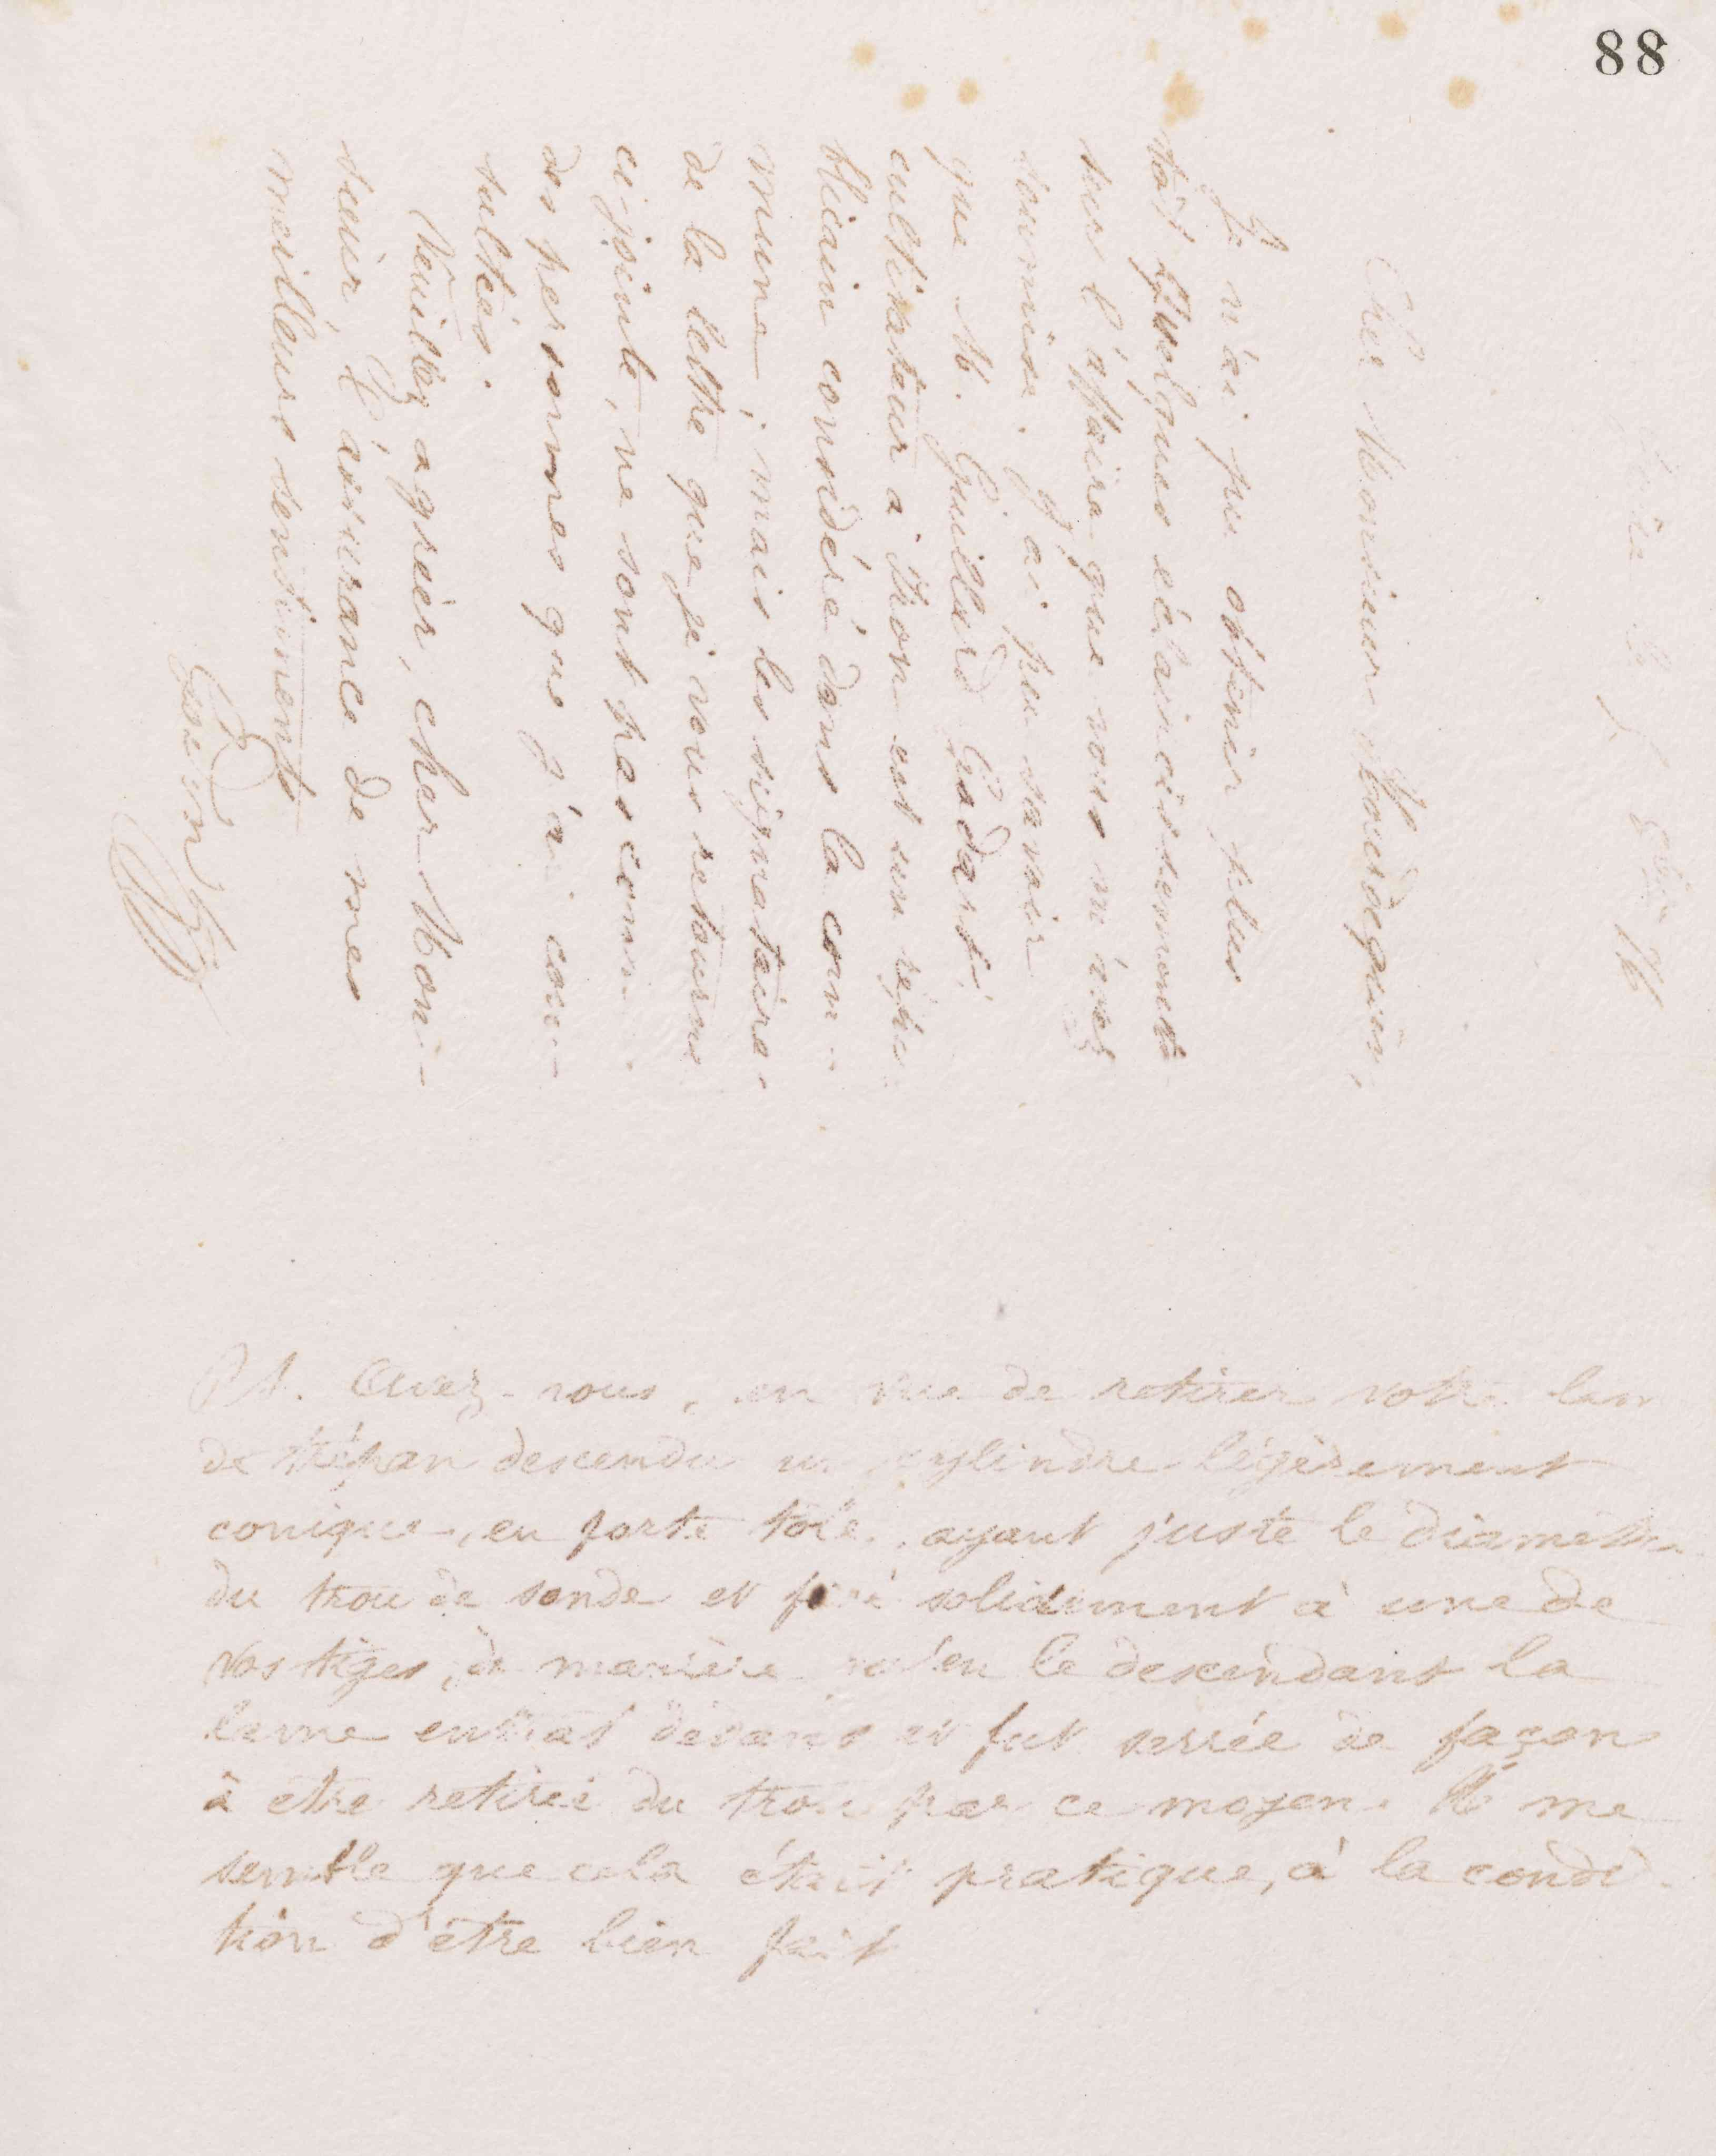 88
Cher Monsieur Hurdequin,
Je n'ai pu obtenir plus
tôt quelques éclaircissements
sur l'affaire que vous m'avez
soumise. J'ai pu savoir
que M. Guillard Godard,
cultivateur à Thon est un répu-
blicain considéré dans la com-
mune; mais les signataires
de la lettre que je vous retourne
ci jointe, ne sont pas connus
des personnes que j'ai con-
sultées.
Veuillez agréer, cher Mon-
sieur, l'assurance de mes
meilleurs sentiments
Godin
PS. Avez-vous, en vue de retirer votre lame
de trépan descendu un cylindre légèrement
conique, en forte tôle, ayant juste le diamètre
du trou de sonde et fixé solidement à une de
vos tiges, de manière qu'en le descendant la
lame entrât dedans et fut serrée de façon
à etre retirée du trou par ce moyen. Il me
semble que cela était pratique, à la condi-
tion d'être bien fait